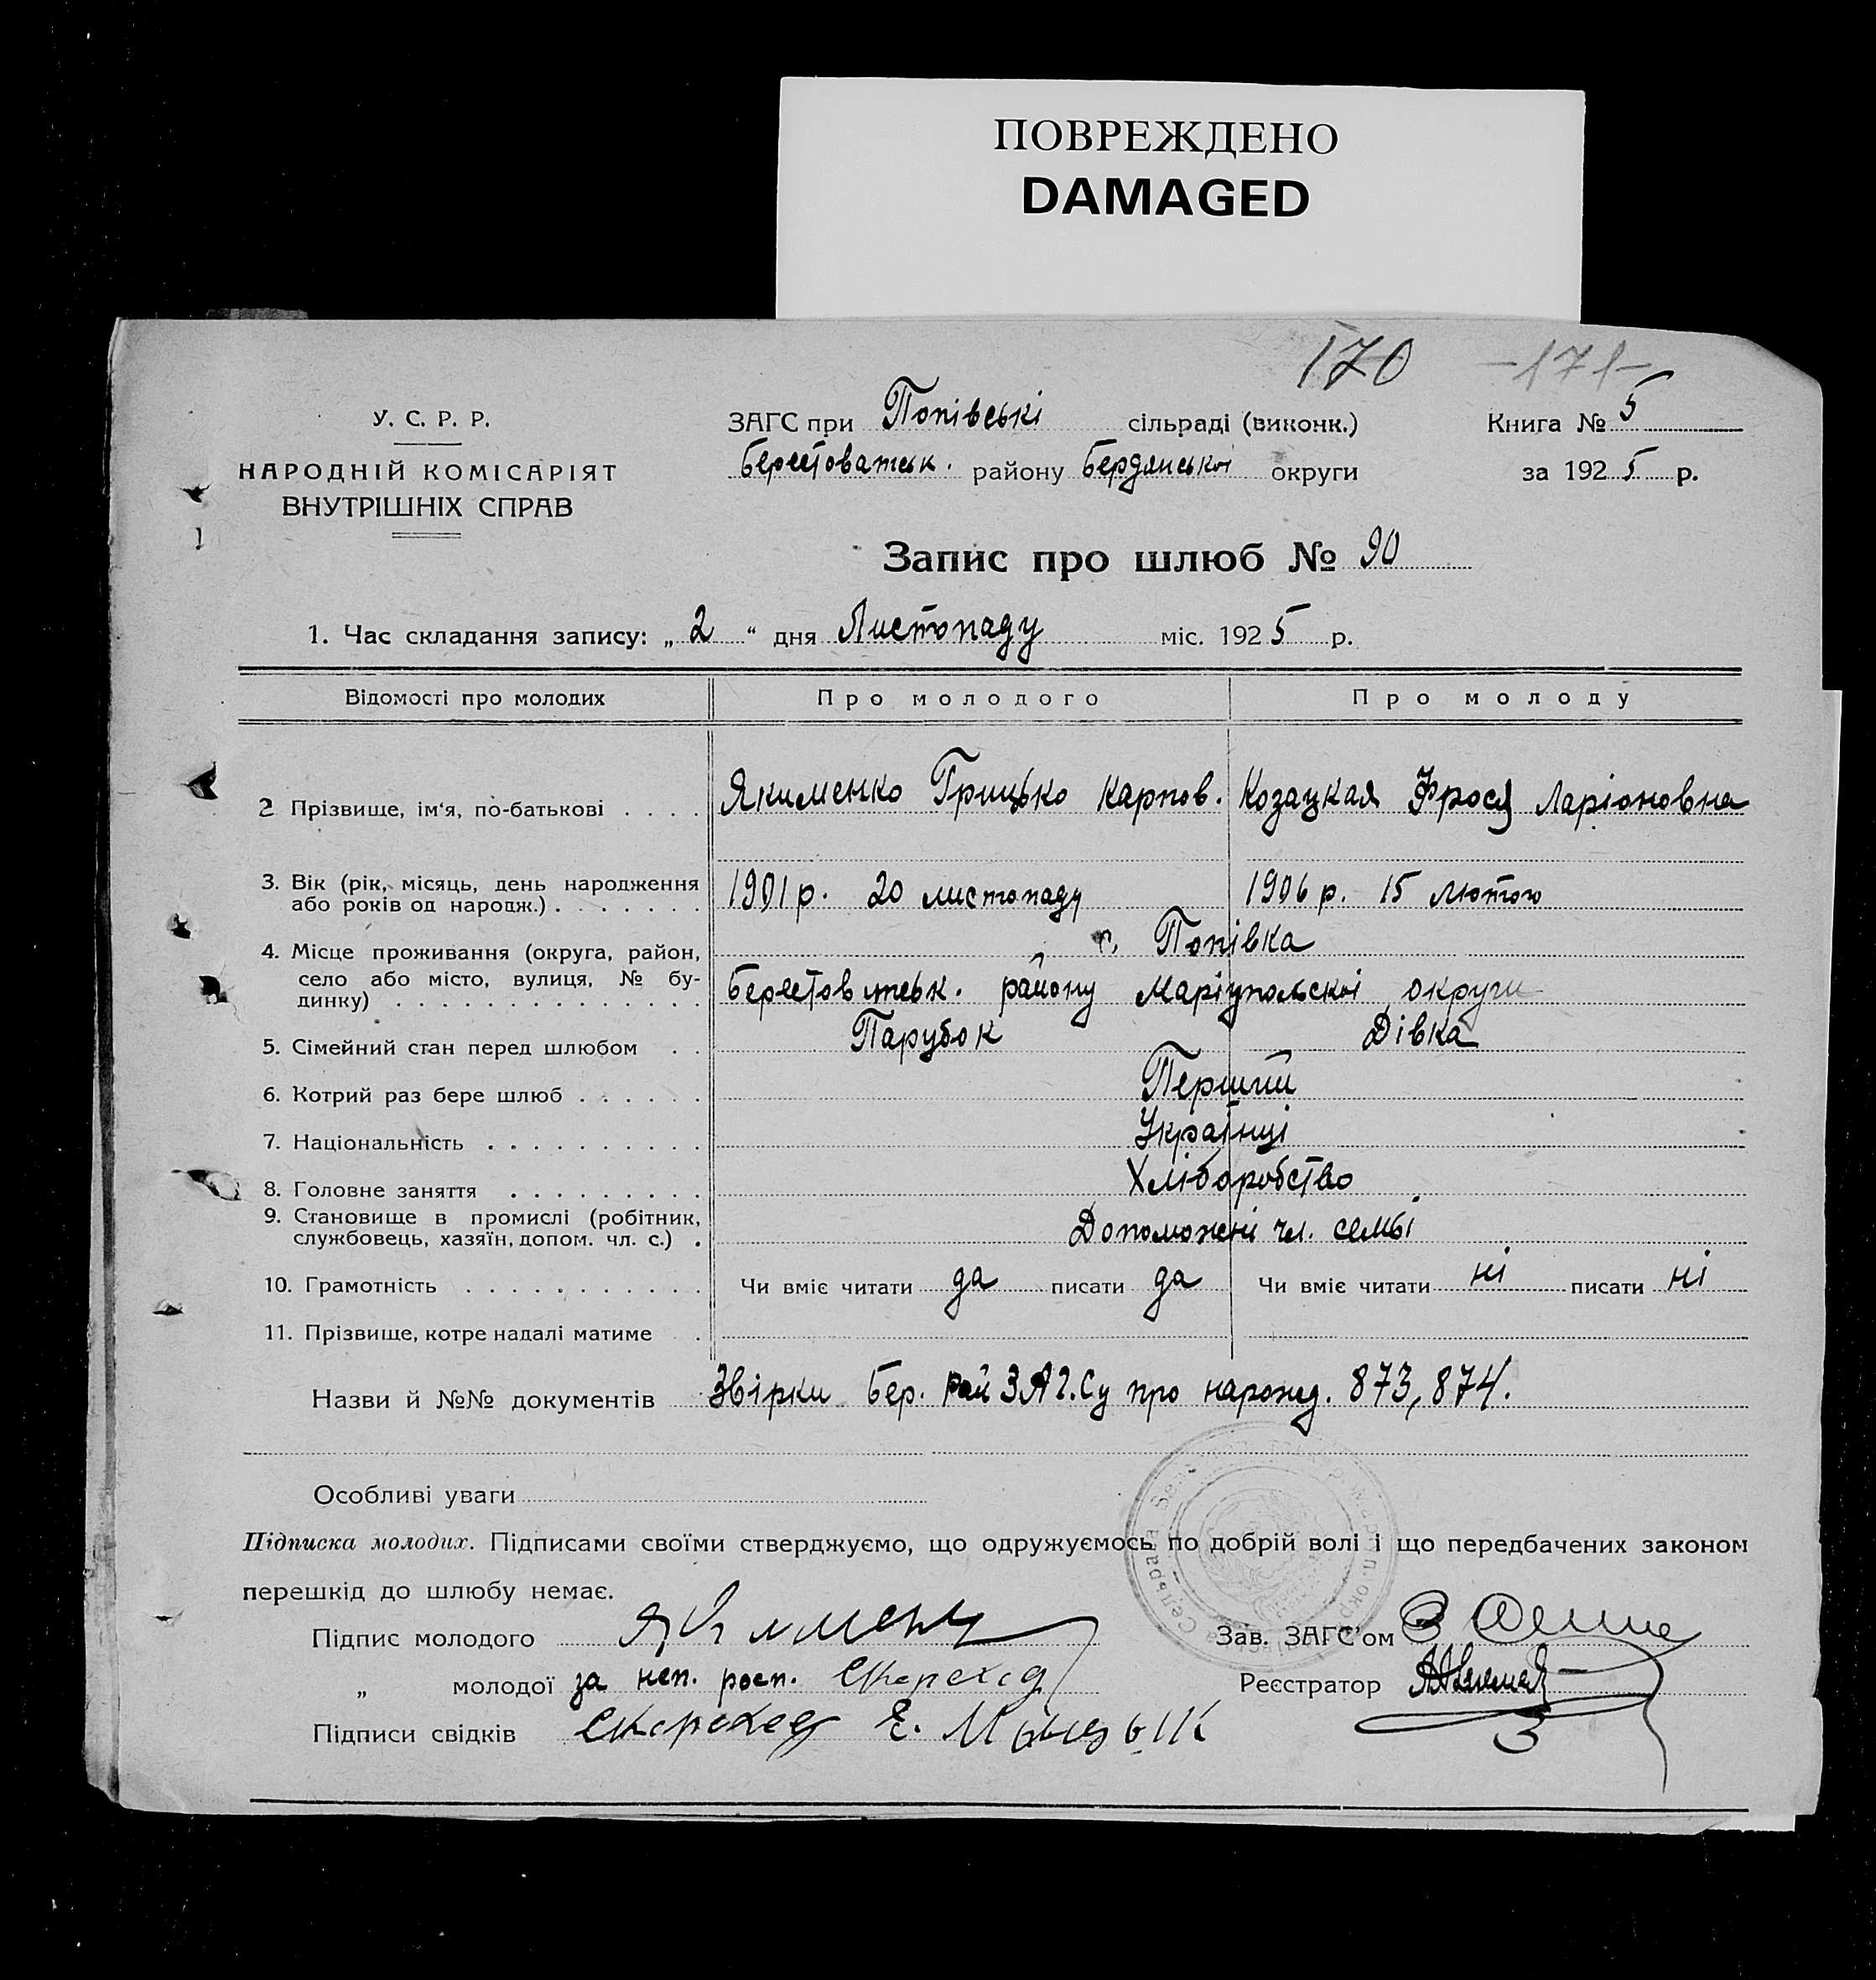 ПОВРЕЖДЕНО
DAMAGED
170 -171-
У. С. Р. Р.
НАРОДНІЙ КОМІСАРІЯТ
ВНУТРІШНІХ СПРАВ
ЗАГС при Попівські сільраді (виконк.) Книга № 5
Берестоватськ. району Бердянської округи за 1925 р.
Запис про шлюб № 90
1. Час складання запису: „2" дня Листопаду міс. 1925 р.
Відомості про молодих Про молодого Про молоду
2 Прізвище, ім'я, по-батькові . . . . Якименко Грицько Карпов. Козацкая Фрося Ларіоновна
3. Вік (рік, місяць, день народження
або років од народж.) . . . . . . . 1901 р. 20 листопаду 1906 р. 15 лютого
4. Місце проживання (округа, район, Попівка
село або місто, вулиця, № бу-
динку) . . . . . . . . . . . . . . Берестоватськ. району Маріупольскої округи
5. Сімейний стан перед шлюбом . . Парубок Дівка
6. Котрий раз бере шлюб . . . . . . Перший
7. Національність . . . . . . . . . . Українці
8. Головне заняття . . . . . . . . . Хліборобство
9. Становище в промислі (робітник,
службовець, хазяїн, допом. чл. с.) . Допоможні чл. семьї
10. Грамотність . . . . . . . . . . . Чи вміє читати да писати да Чи вміє читати ні писати ні
11. Прізвище, котре надалі матиме .
Назви й №№ документів Звірки Бер. Рай ЗАГ.Су про нарожд. 873, 874.
Особливі уваги
Підписка молодих. Підписами своїми стверджуємо, що одружуємось по добрій волі і що передбачених законом
перешкід до шлюбу немає.
Підпис молодого Зав. ЗАГС'ом
„ молодої за неп. росп. Скороход Реєстратор
Підписи свідків Скороход Е.